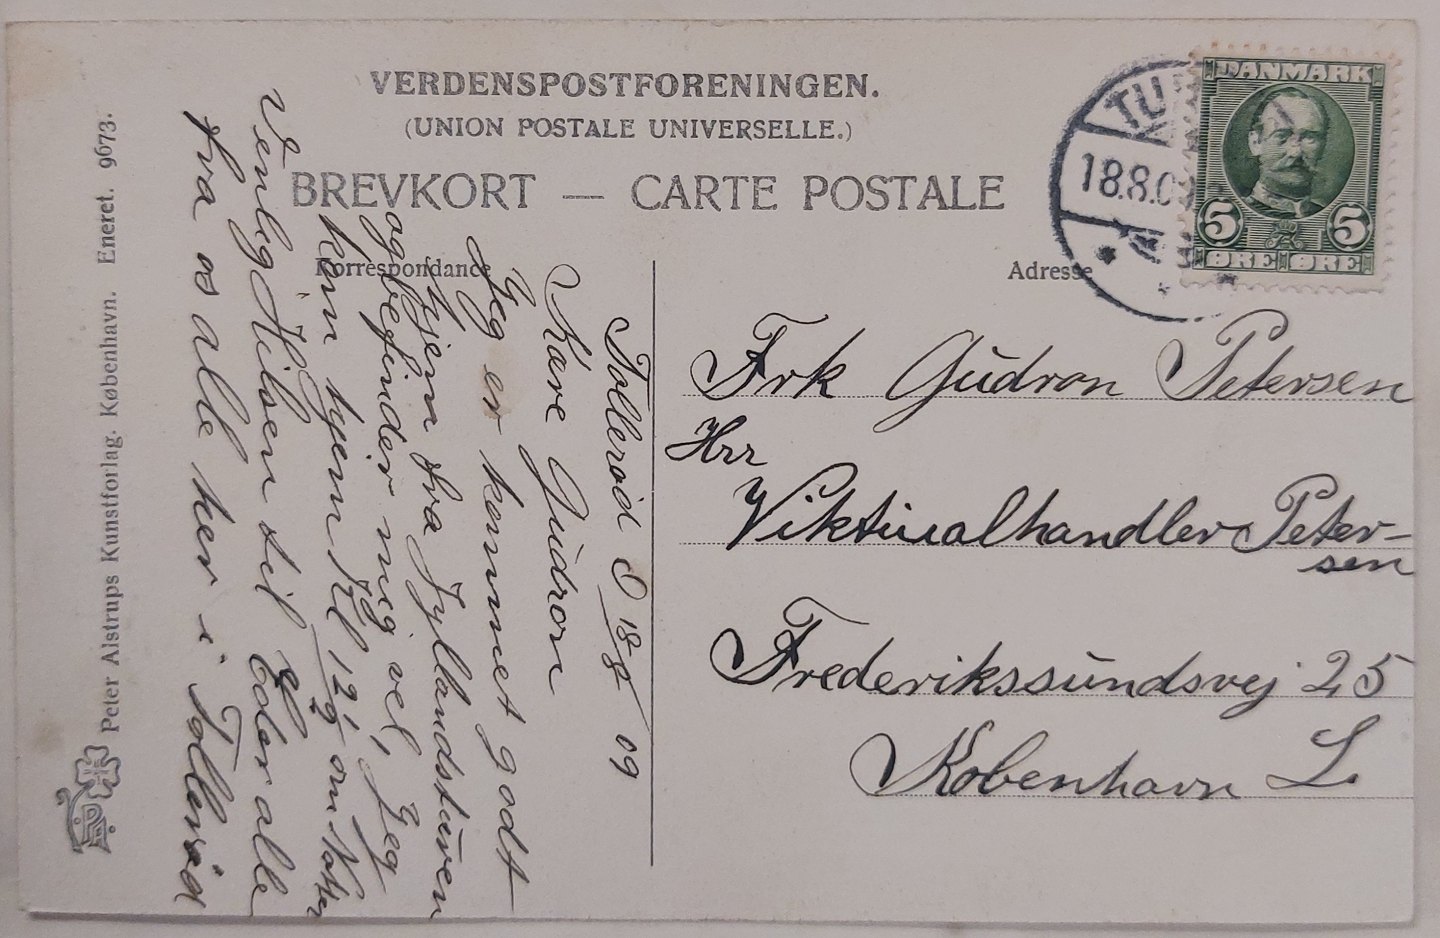 VERDENSPOSTFORENINGEN.
(UNION POSTALE UNIVERSELLE.)
BREVKORT — CARTE POSTALE
Korrespondance
Adresse
DANMARK
5 5
ØRE ØRE
TU
18.8.09
Frk Gudron Petersen
Hrr
Viktiualhandler Peter-
sen
Frederikssundsvej 25
København L
Tollerød D 18/8 09
Kære Gudron
Jeg er kommet godt
hjem fra Jyllandsturen
og befinder mig vel, Jeg
kom hjem Kl 12½ om Natten
Venlig Hilsen til Eder alle
fra os alle her i Tollerød
Peter Alstrups Kunstforlag. København. Eneret. 9673.